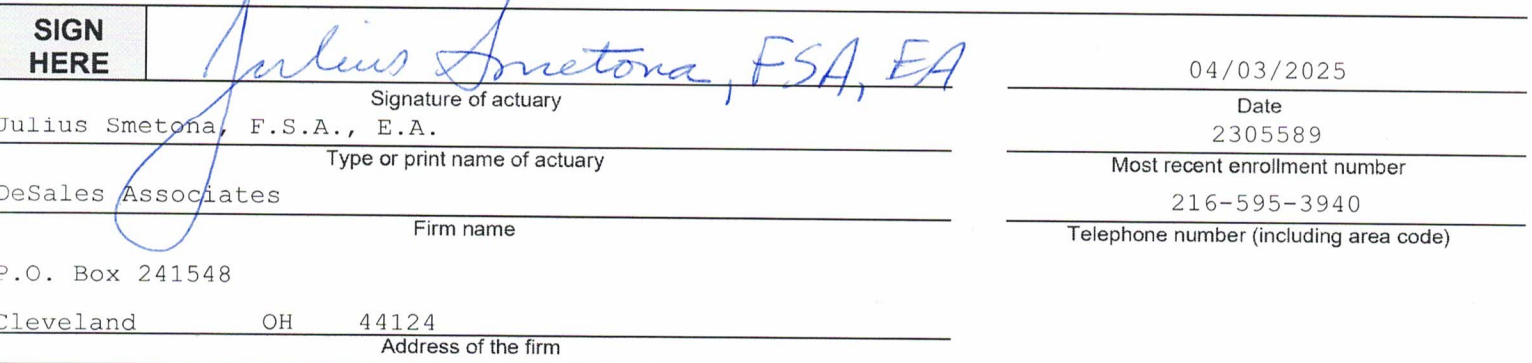 SIGN
HERE
Julius Smetona, FSA, EA
04/03/2025
Signature of actuary
Date
Julius Smetona, F.S.A., E.A.
2305589
Type or print name of actuary
Most recent enrollment number
DeSales Associates
216-595-3940
Firm name
Telephone number (including area code)
P.O. Box 241548
Cleveland OH 44124
Address of the firm